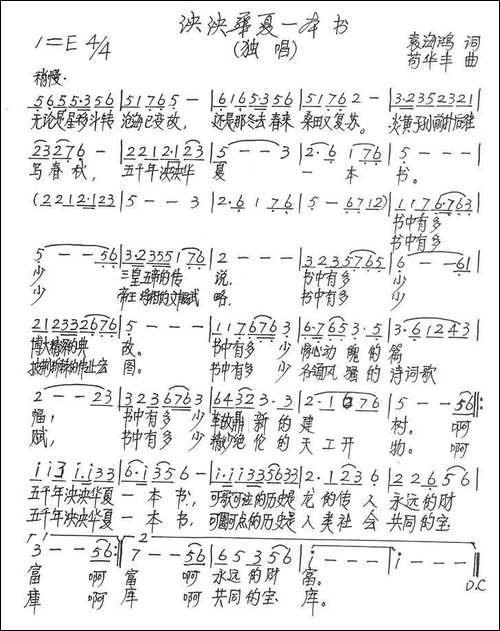 泱泱华夏一本书
(独唱)
1=E 4/4
袁海鸿 词
苟华丰 曲
稍慢.
5655·356 | 5176 5 - | 6165356 | 5176 2 - | 3·2352321 |
无论是星移斗转 沧海已变故, 还是那冬去春来 桑田又复苏. 炎黄子孙前仆后继
23276 - | 2212·123 | 5 - - 3 | 2·6 1 76 | 5 - - - |
写春秋, 五千年泱泱华 夏 一 本 书.
(2212·123 | 5 - - 3 | 2·6 176 | 5 - 6712) | 1176·763 |
书中有多
书中有多
5 - - 56 | 3·2355176 | 2 - - - | 3235765 | 6 - - 61 |
少 三皇五帝的传 说. 书中有多 少
少 帝王将相的文韬武 略. 书中有多 少
212332676 | 5 - - - | 1176763 | 6·7653·5 | 3·61243 |
博大精深的典 故. 书中有多 少 惊心动魄的篇
图. 书中有多 少 各领风骚的诗词歌
2 - - 23 | 3236763 | 64323·3 | 2·1676 | 5 - - 56 :||
幅, 书中有多 少 革故鼎新的建 树. 啊
赋, 书中有多 少 绝伦的天工开 物. 啊
五千年泱泱华夏一本书, 可歌可泣的历史是龙的传人永远的财
五千年泱泱华夏一本书, 可圈可点的历史是人类社会共同的宝
3 - - 56 :|| 7 - - 56 | 65356 | i - - - | i - - - ||
富 啊 富 啊 永远的财 富.
库 啊 库 啊 共同的宝 库.
D.C